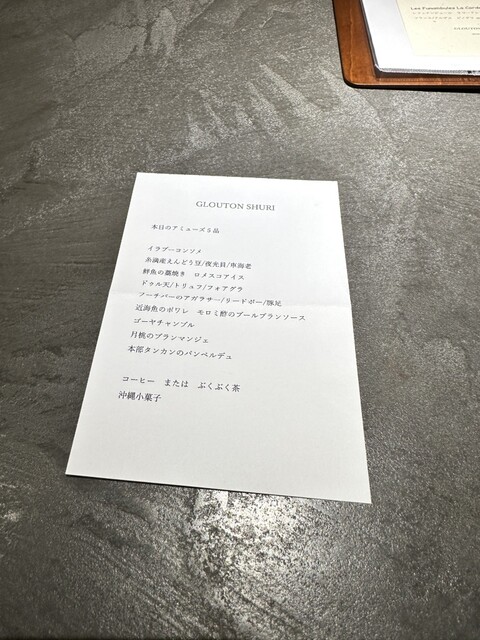 Les Funambules La Corde
GLOUTON SHURI
本日のアミューズ5品
イラブーコンソメ
糸満産えんどう豆/夜光貝/車海老
鮮魚の藁焼き ロメスコアイス
ドゥル天/トリュフ/フォアグラ
フーチバーのアガラサー/リードボー/豚足
近海魚のポワレ モロミ酢のブールブランソース
ゴーヤチャンプル
月桃のブランマンジェ
本部タンカンのバンベルデュ
コーヒー または ぶくぶく茶
沖縄小菓子